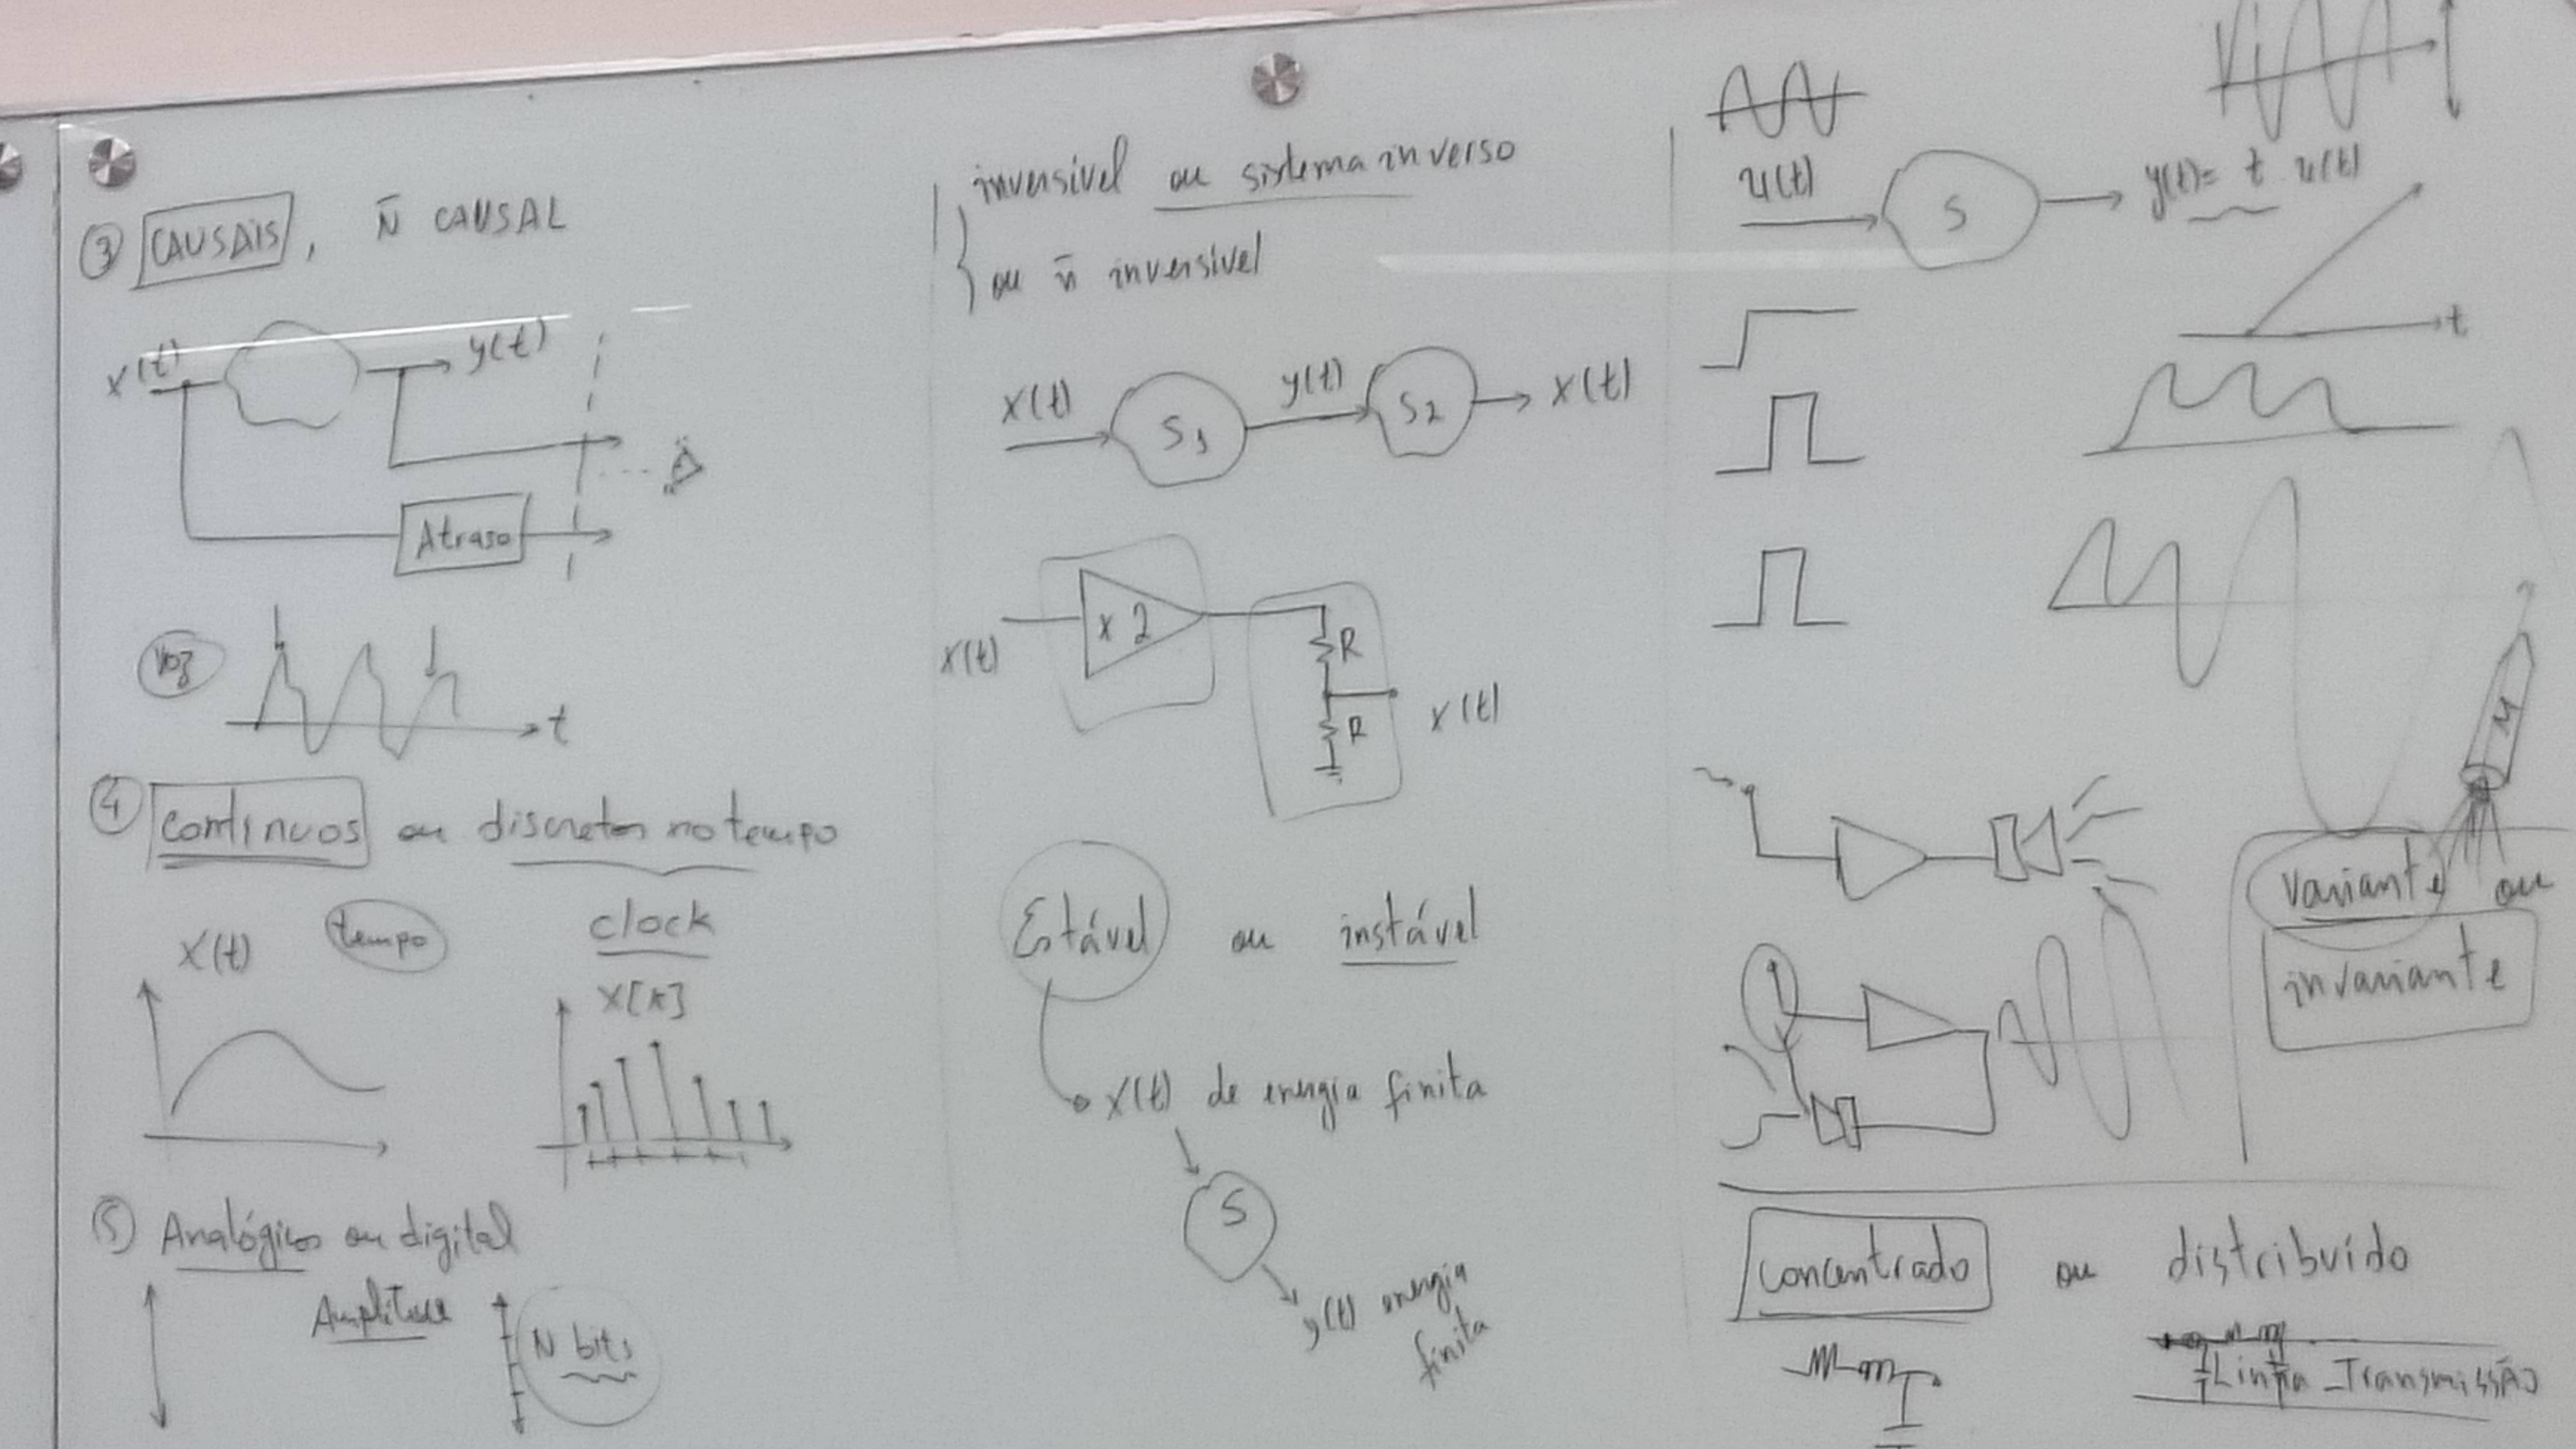 ③ CAUSAIS, Ñ CAUSAL
x(t) y(t)
Atraso
voz
t
④ contínuos ou discretos no tempo
x(t) tempo clock
x[k]
⑤ Analógicos ou digital
Amplitude N bits
inversível ou sistema inverso
ou ñ inversível
x(t) S1 y(t) S2 x(t)
x 2
R
x(t)
x(t)
R
Estável ou instável
x(t) de energia finita
S
y(t) energia
finita
u(t) S y(t)= t u(t)
t
M
variante ou
invariante
concentrado ou distribuído
Linha Transmissão